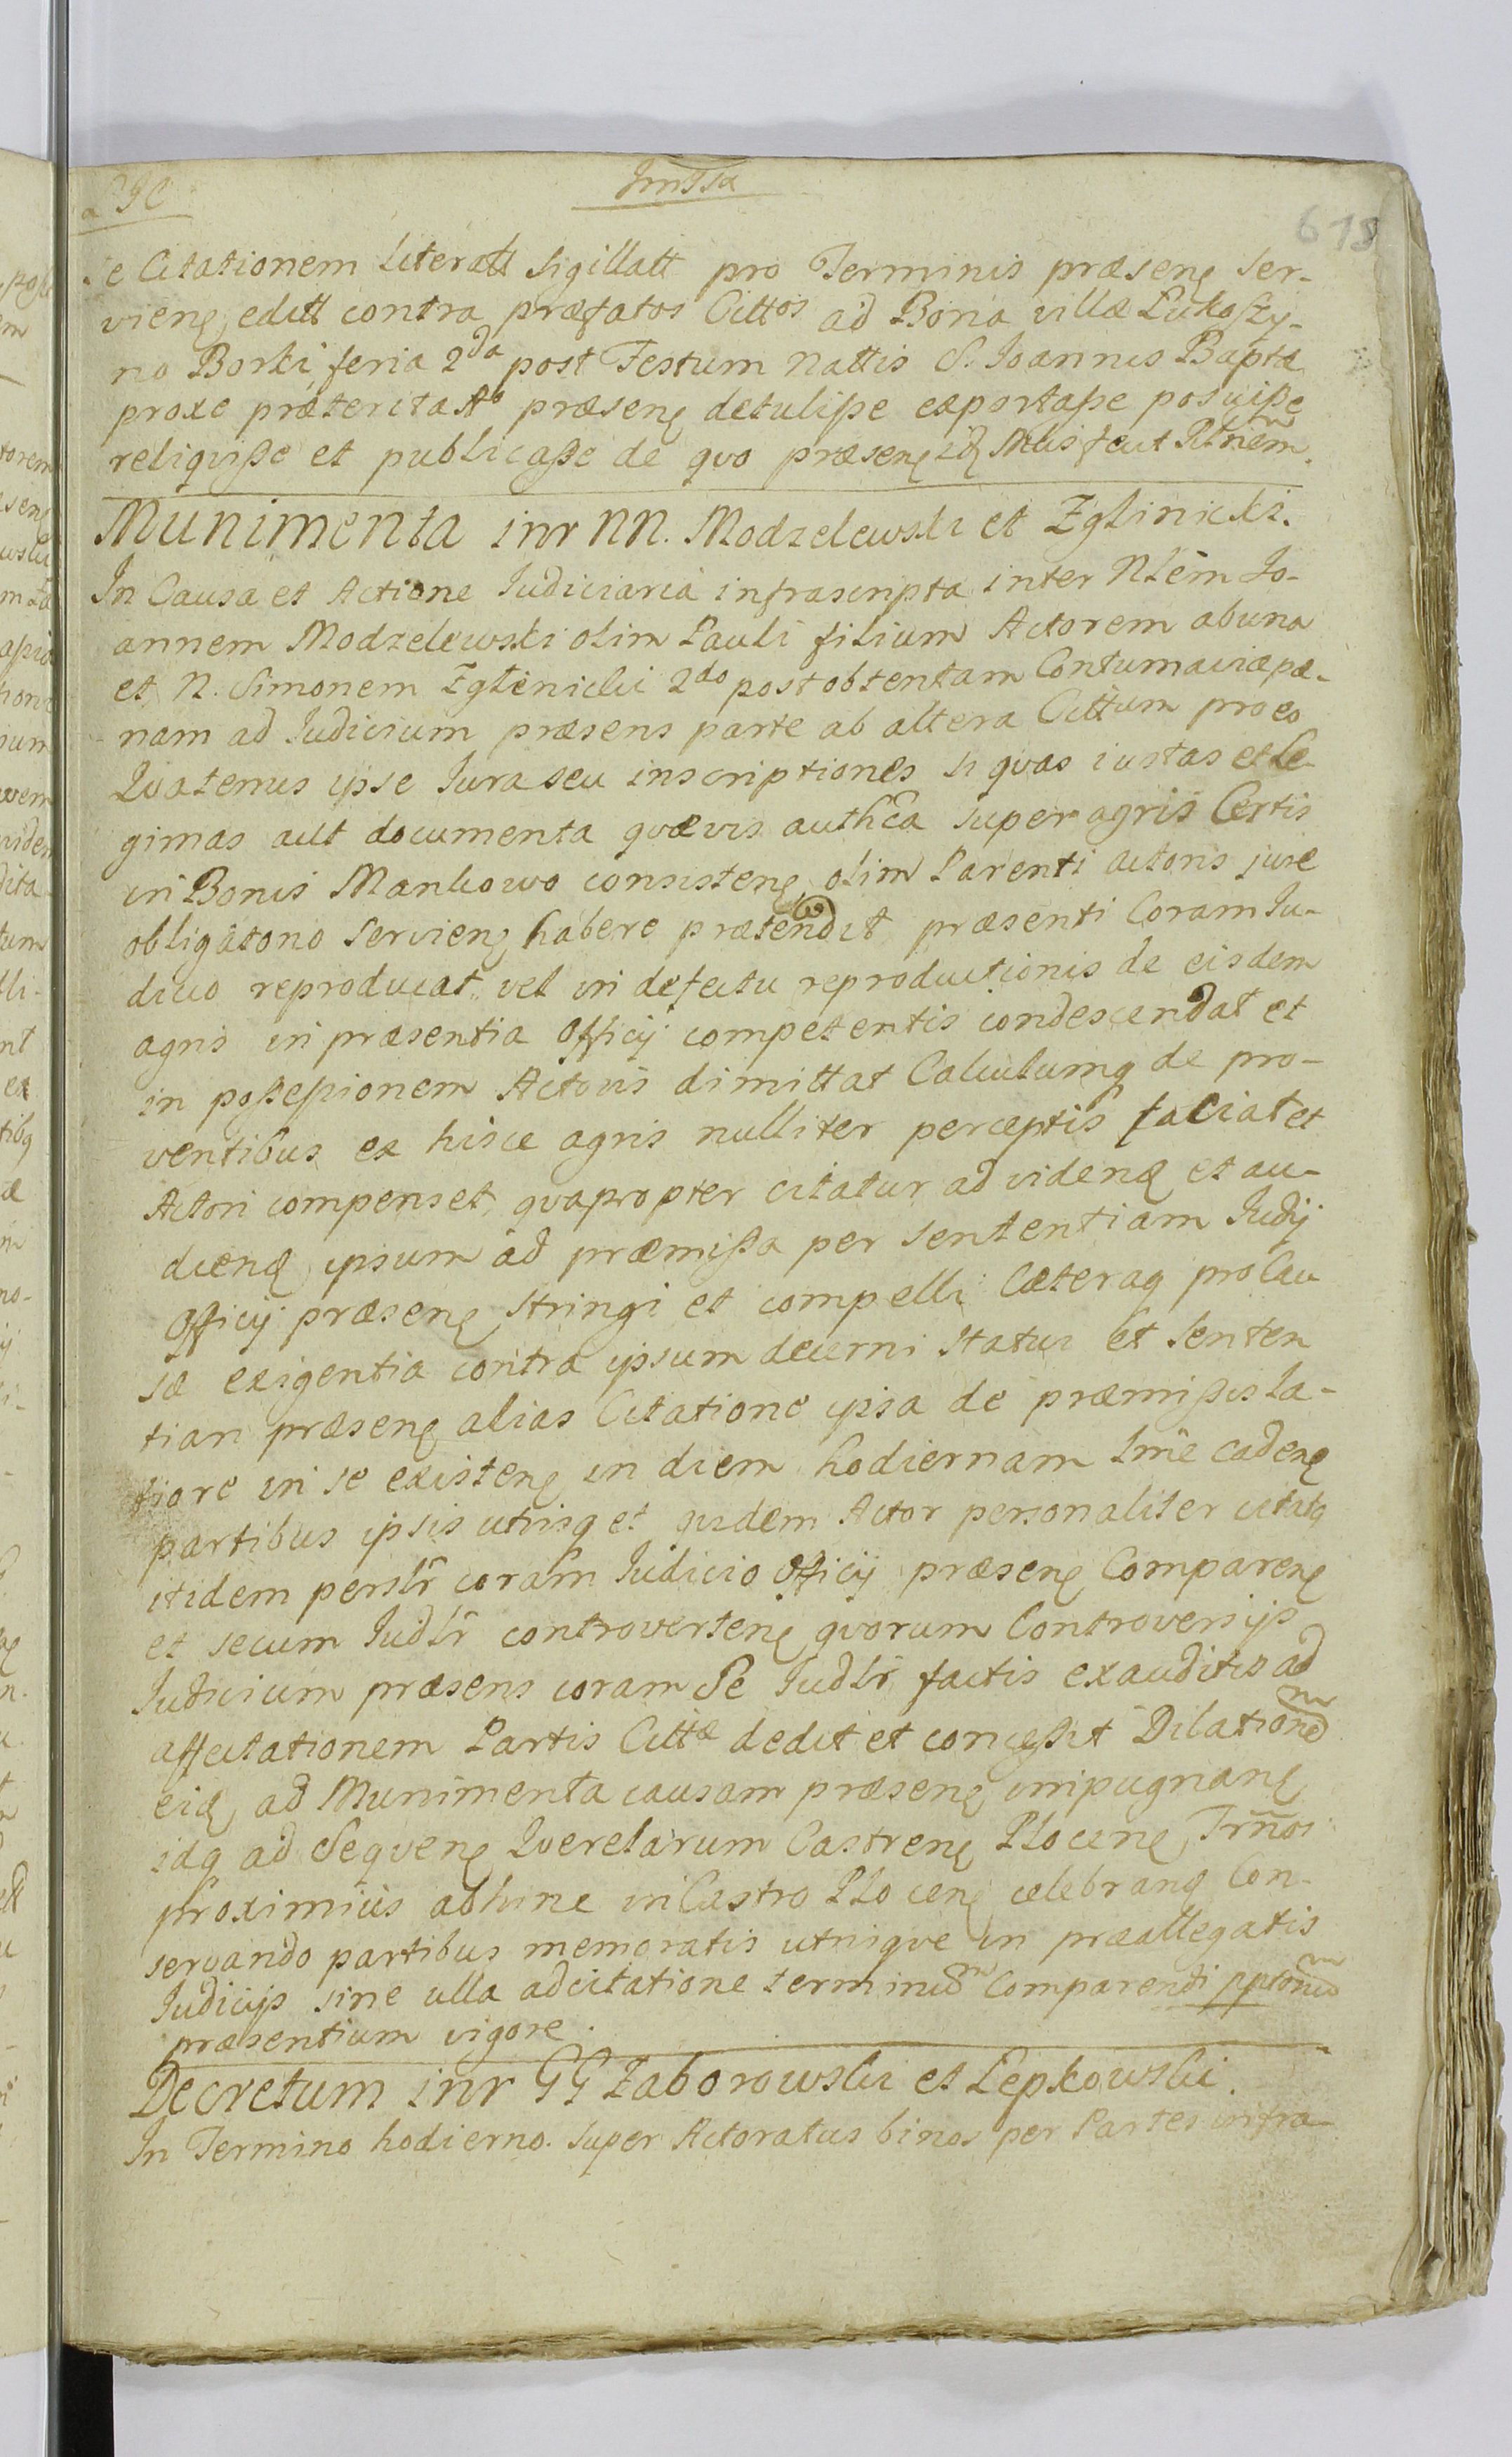 Immissa
618
se Citationem literatt sigillatt pro Terminis præsenꝭ ser-
vienꝭ editt contra præfatos Cittos ad Bona villæ Lukoszy-
no Borki feria 2da post Festum Nattis S. Joannis Baptæ
proxe præterita Ao præsenꝭ detulisse exportasse posuisse
reliquisse et publicasse de quo præsenꝭ
Munimenta inr NN. Modzelewski et Zglinicki.
In Causa et Actione Judiciaria infrascripta inter Nlem Jo-
annem Modzelewski olim Pauli filium Actorem ab una
et N. Simonem Zglenicki 2do post obtentam Contumaciæ pæ-
nam ad Judicium præsens parte ab altera Cittum pro eo
Quatenus ipse Jura seu inscriptiones si quas iustas et le-
gimas aut documenta quævis authca super agris Certis
in Bonis Mankowo consistenꝭ olim Parenti Actoris jure
obligatorio servienꝭ habere prætendit præsenti Coram Ju-
dicio reproducat vel in defectu reproductionis de eisdem
agris in præsentia Officij competentis condescendat et
in possessionem Actoris dimittat Calculumq de pro-
ventibus ex hisce agris nulliter perceptis faciat et
Actori compenset, quapropter citatur ad videnꝭ et au-
dienꝭ ipsum ad præmissa per sententiam Judij
Officij præsenꝭ stringi et compelli Cæteraq pro Cau
sæ exigentia contra ipsum decerni statui et senten
tiari præsenꝭ alias Citatione ipsa de præmissis la-
tiore in se existenꝭ in diem hodiernam lme cadenꝭ
partibus ipsis utrisq et quidem Actor personaliter citatq
itidem perslr coram Judicio Officij præsenꝭ Comparenꝭ
et secum Judlr controvertenꝭ quorum Controversijs
Judicium præsens coram Se Judlr factis exauditis ad
affectationem Partis Cittæ dedit et concessit Dilationem
eidꝭ ad Munimenta causam præsenꝭ impugnanꝭ
idq ad Sequenꝭ Querelarum Castrenꝭ Plocenꝭ Trnos
proximius adhinc in Castro Plocenꝭ celebranꝭ Con-
servando partibus memoratis utrisque in præallegatis
Judicijs sine ulla adcitatione terminum Comparendi
præsentium vigore.
Decretum inr GG Zaborowski et Lepkowski.
In Termino hodierno. Super Actoratus binos per Partes infra-